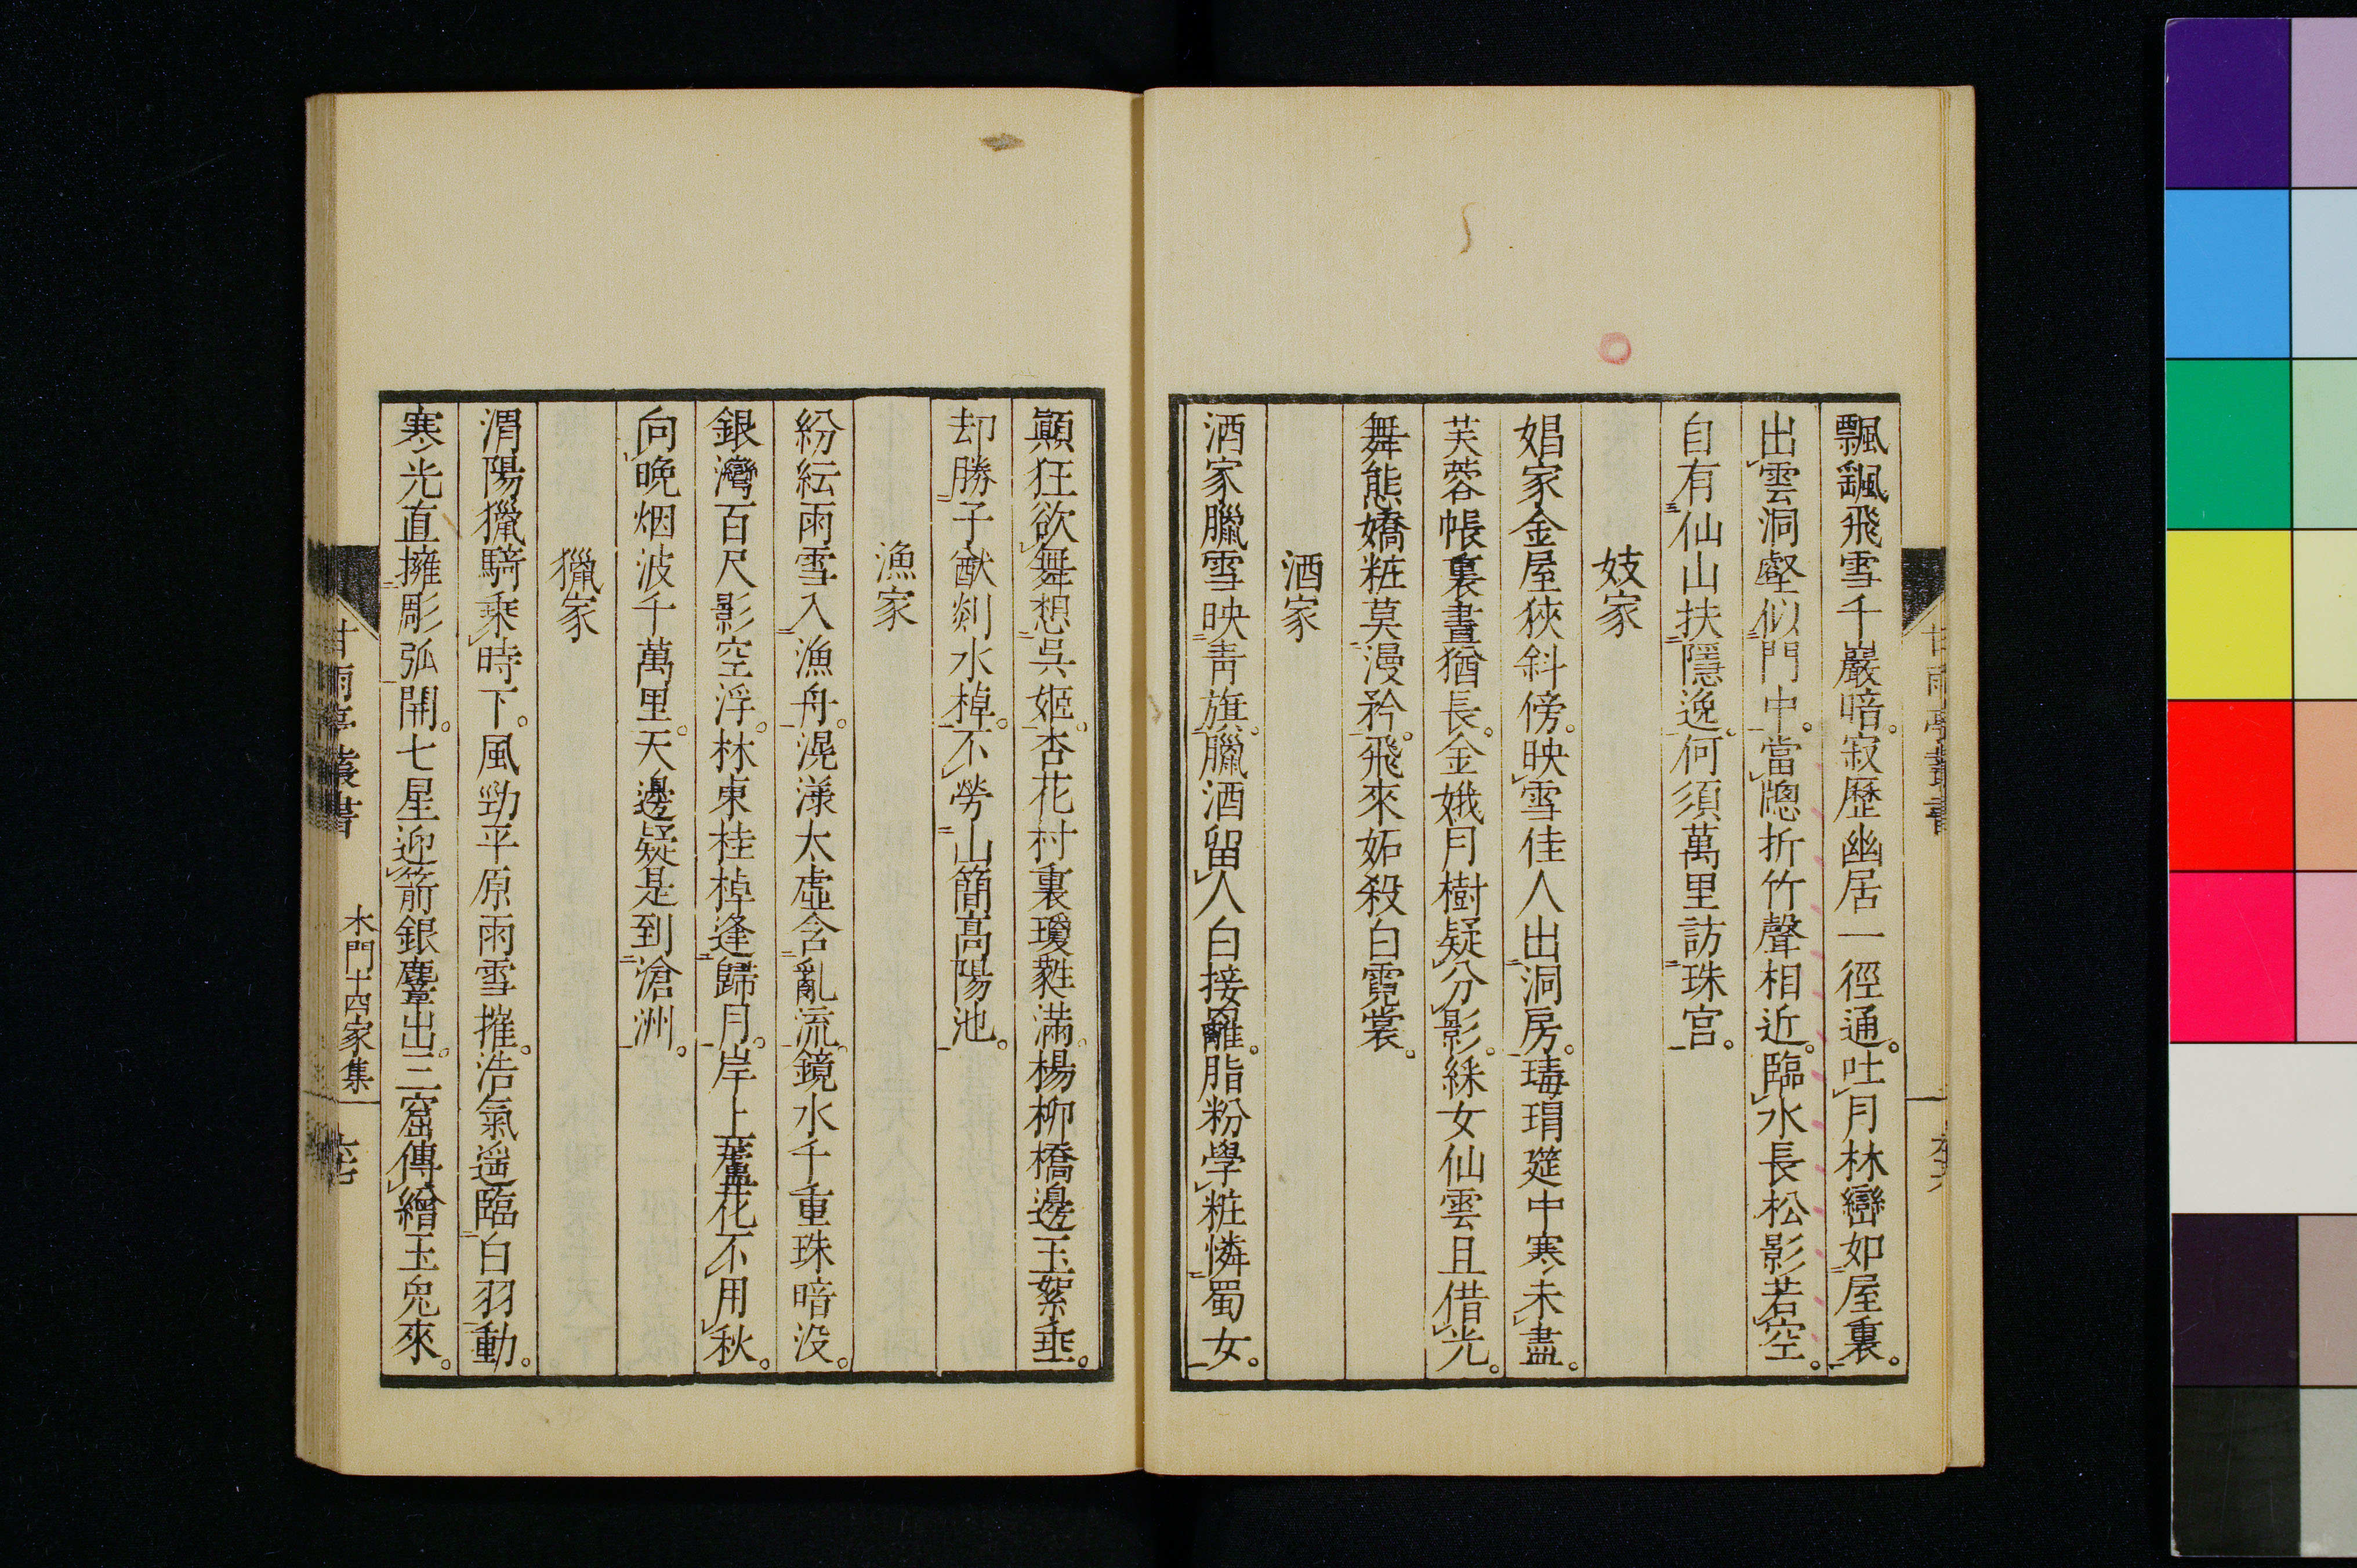 飄颻飛雪千巖暗。寂歷幽居一徑通。吐月林巒如屋裏。
出雲洞壑似門中。當牕折竹聲相近。臨水長松影若空。
自有仙山扶隱逸。何須萬里訪珠宮。
妓家
娼家金屋狹斜傍。映雪佳人出洞房。瑇瑁筵中寒未盡。
芙蓉帳裏晝猶長。金娥月樹疑分影。綵女仙雲且借光。
舞態嬌粧莫漫矜。飛來妬殺白霓裳。
酒家
酒家臘雪映青旗。臘酒留人白接䍦。脂粉學粧憐蜀女。
顚狂欲舞想吳姬。杏花村裏瓊蕤滿。楊柳橋邊玉絮垂。
却勝子猷剡水棹。不勞山簡高陽池。
漁家
紛紜雨雪入漁舟。滉漾太虛含亂流。鏡水千重珠暗沒。
銀灣百尺影空浮。林東桂棹逢歸月。岸上蘆花不用秋。
向晚烟波千萬里。天邊疑是到滄洲。
獵家
渭陽獵騎乘時下。風勁平原雨雪摧。浩氣遥臨白羽動。
寒光直擁彫弧開。七星迎箭銀麞出。三窟傳繒玉兎來。
甘雨亭叢書
木門十四家集